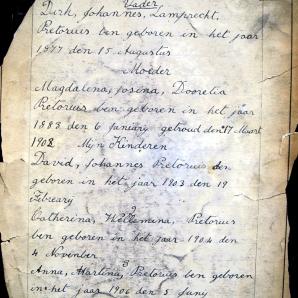 Vader
Dirk, Johannes, Lamprecht,
Pretorius ben geboren in het jaar
1877 den 15 Augustus
Moeder
Magdalena, Josina, Doorelia
Pretorius ben geboren in het jaar
1883 den 6 Januarij getroud den 17 Maart
1902 Mijn Kinderen
David, Johannes Pretorius den
geboren in het jaar 1903 den 19
Febrearij
2
Catherina, Willemina, Pretorius
ben geboren in het jaar 1904 den
4 November
3
Anna, Martina, Pretorius ben geboren
in het jaar 1906 den 5 Junij